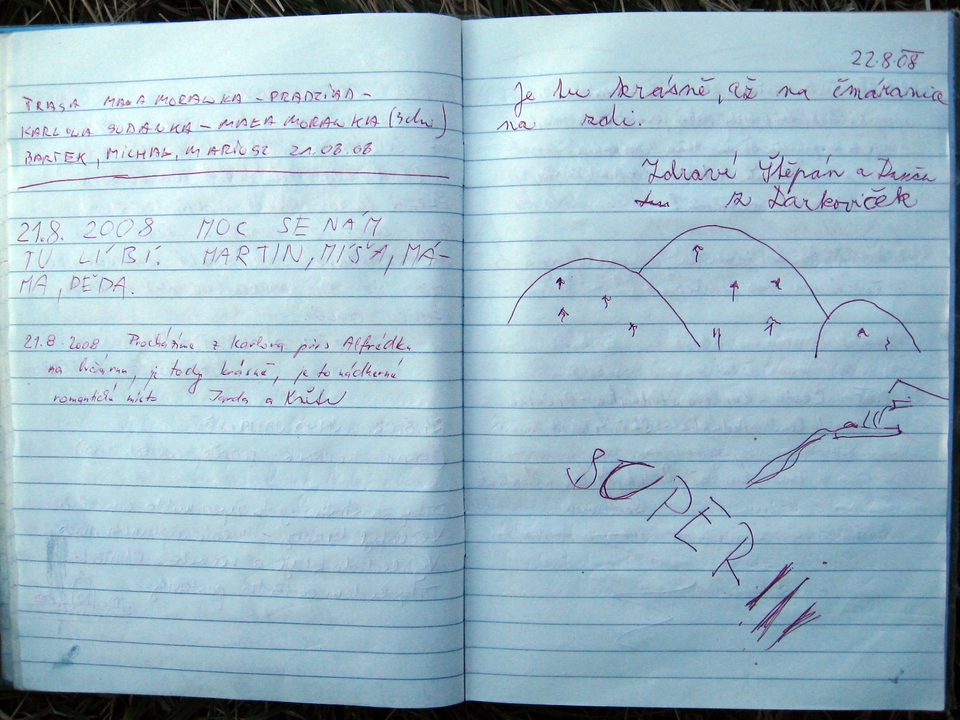 TRASA MAŁA MORAWKA - PRADZIAD -
KARLOVA STUDANKA - MAŁA MORAWKA
BARTEK, MICHAŁ, MARIUSZ 21.08.08
21.8. 2008 MOC SE NÁM
TU LÍBÍ. MARTIN, MÍŠA, MÁ-
MA, DĚDA.
21.8.2008 Procházíme z Karlova přes Alfrédku
na, je tady krásně, je to nádherné
romantické místo Jarda a
22.8.08
Je tu krásně, až na čmáranice
na zdi.
Zdraví Štěpán a
z Darkoviček
SUPER !!!